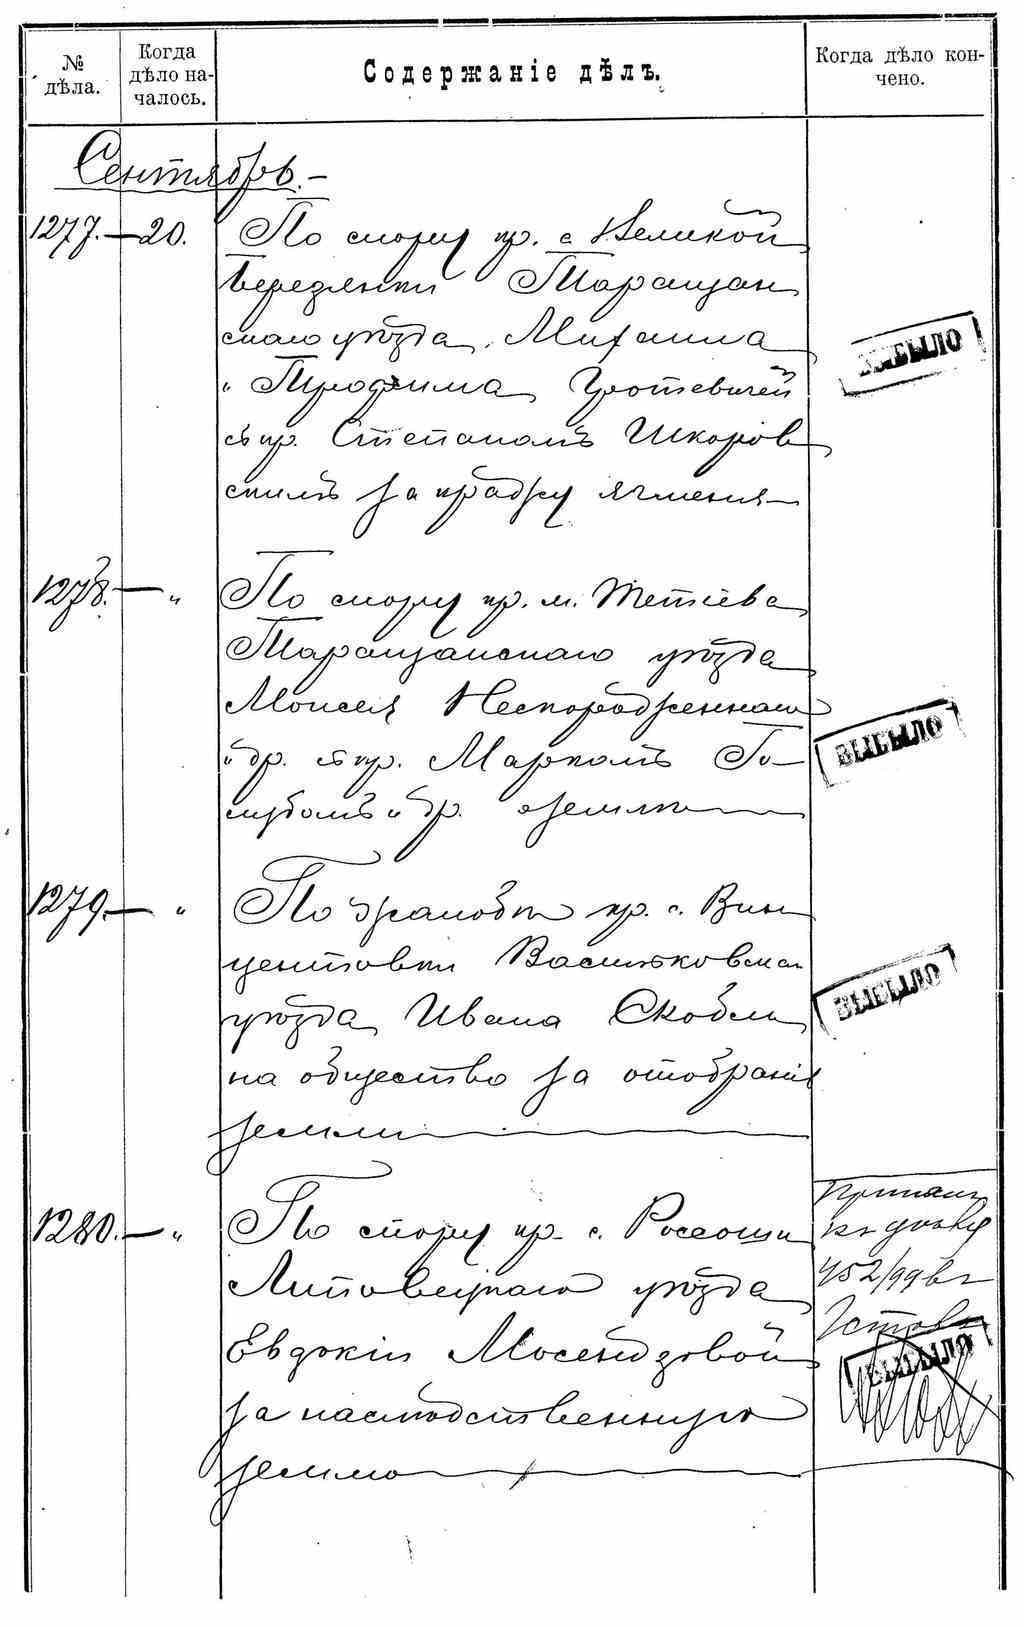 № дѣла.
Когда дѣло на-
чалось.
Содержаніе дѣлъ.
Когда дѣло кон-
чено.
Сентябрь.-
1277.-20. По спору кр. с. Великой
Березянки Таращан
скаго уѣзда, Михаила
и Трофима
съ кр. Степаномъ Шкоров
скимъ за кражу ячменя
1278.- " По спору кр. м. Тетіева
Таращанскаго уѣзда
Моисея Неспороджennаго
и др. съ кр. Маркомъ Го-
лубомъ и др. о землѣ
ВЫБЫЛО
ВЫБЫЛО
1279.- " По жалобѣ кр. с. Вин
центовки Васильковска
уѣзда Ивана Скобли
на общество за отобраніе
земли
ВЫБЫЛО
1280.- " По спору кр. с. Россоши
Липовецкаго уѣзда
Евдокіи Мосендзовой
за наслѣдственную
землю
къ дѣлу
452/99 въ
ВЫБЫЛО